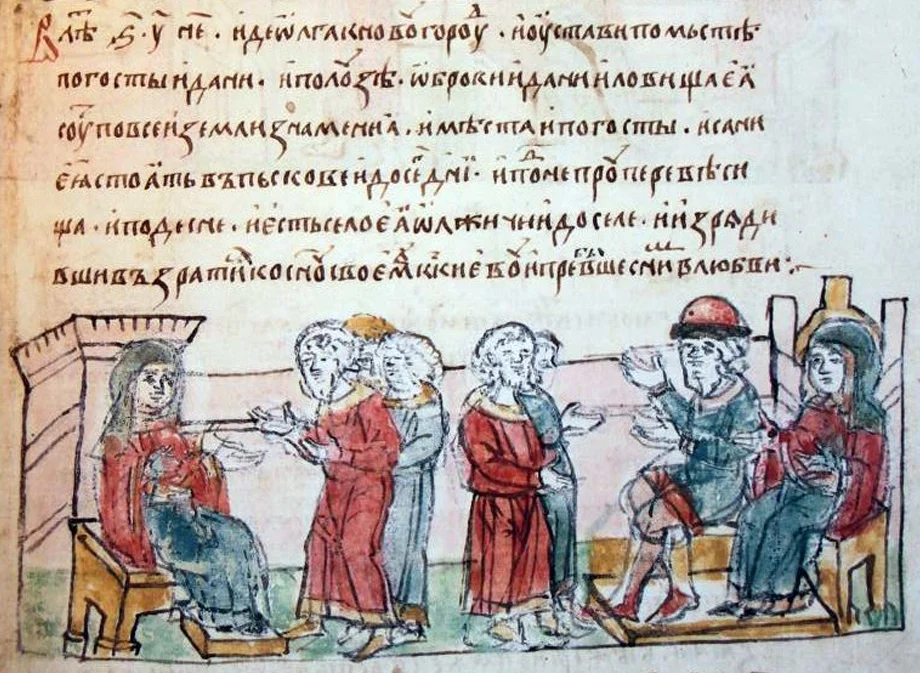 В лѣт҃ ҂ѕ҃ · у҃ · не҃ · иде ѡлга к новогороⷣу · и оустави по мьстѣ
погосты и дани · и по лоузѣ · ѡброки и дани и ловища еꙗ
соуⷮ по всеи земли знамениꙗ · и мѣста и погосты · и сани
еꙗ стоꙗть въ пьскове и до сеⷢ дн҃и · и по днепроу перевѣси
ща · и по десне · и есть село еꙗ ѡльжичи и до селе · и изрꙗди
вши възратиⷭ къ сн҃оу своемꙋ къ киевоу и пребываше с ниⷨ в любви :·